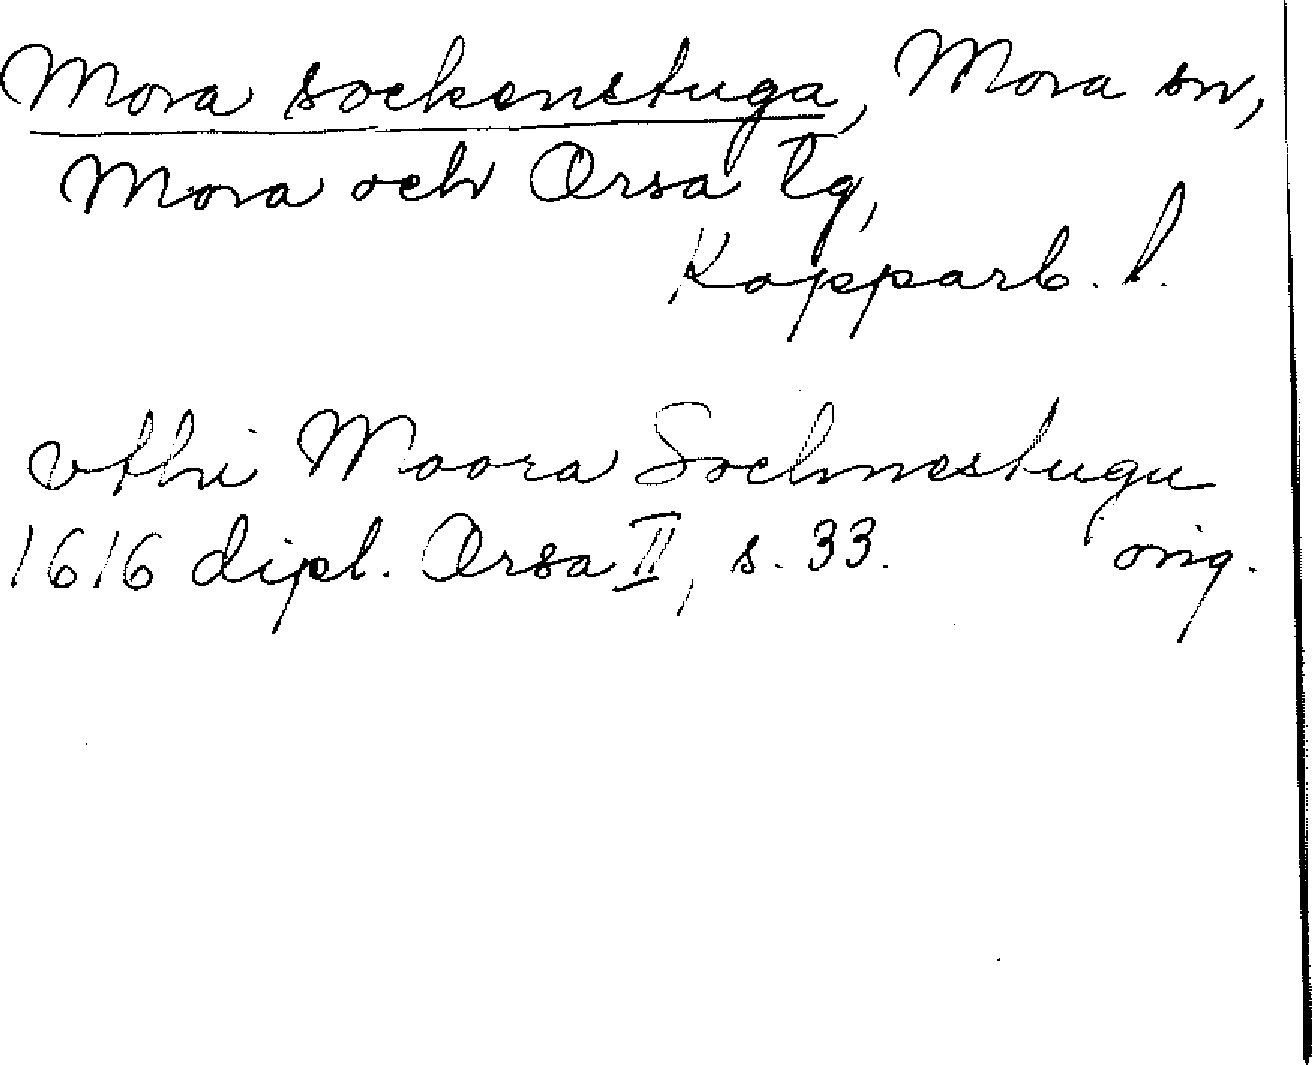 Mora sockenstuga, Mora sn,
Mora och Orsa tg,
Kopparb. l.
vthi Moora Sochnestugu
1616 dipl. Orsa II, s. 33. orig.